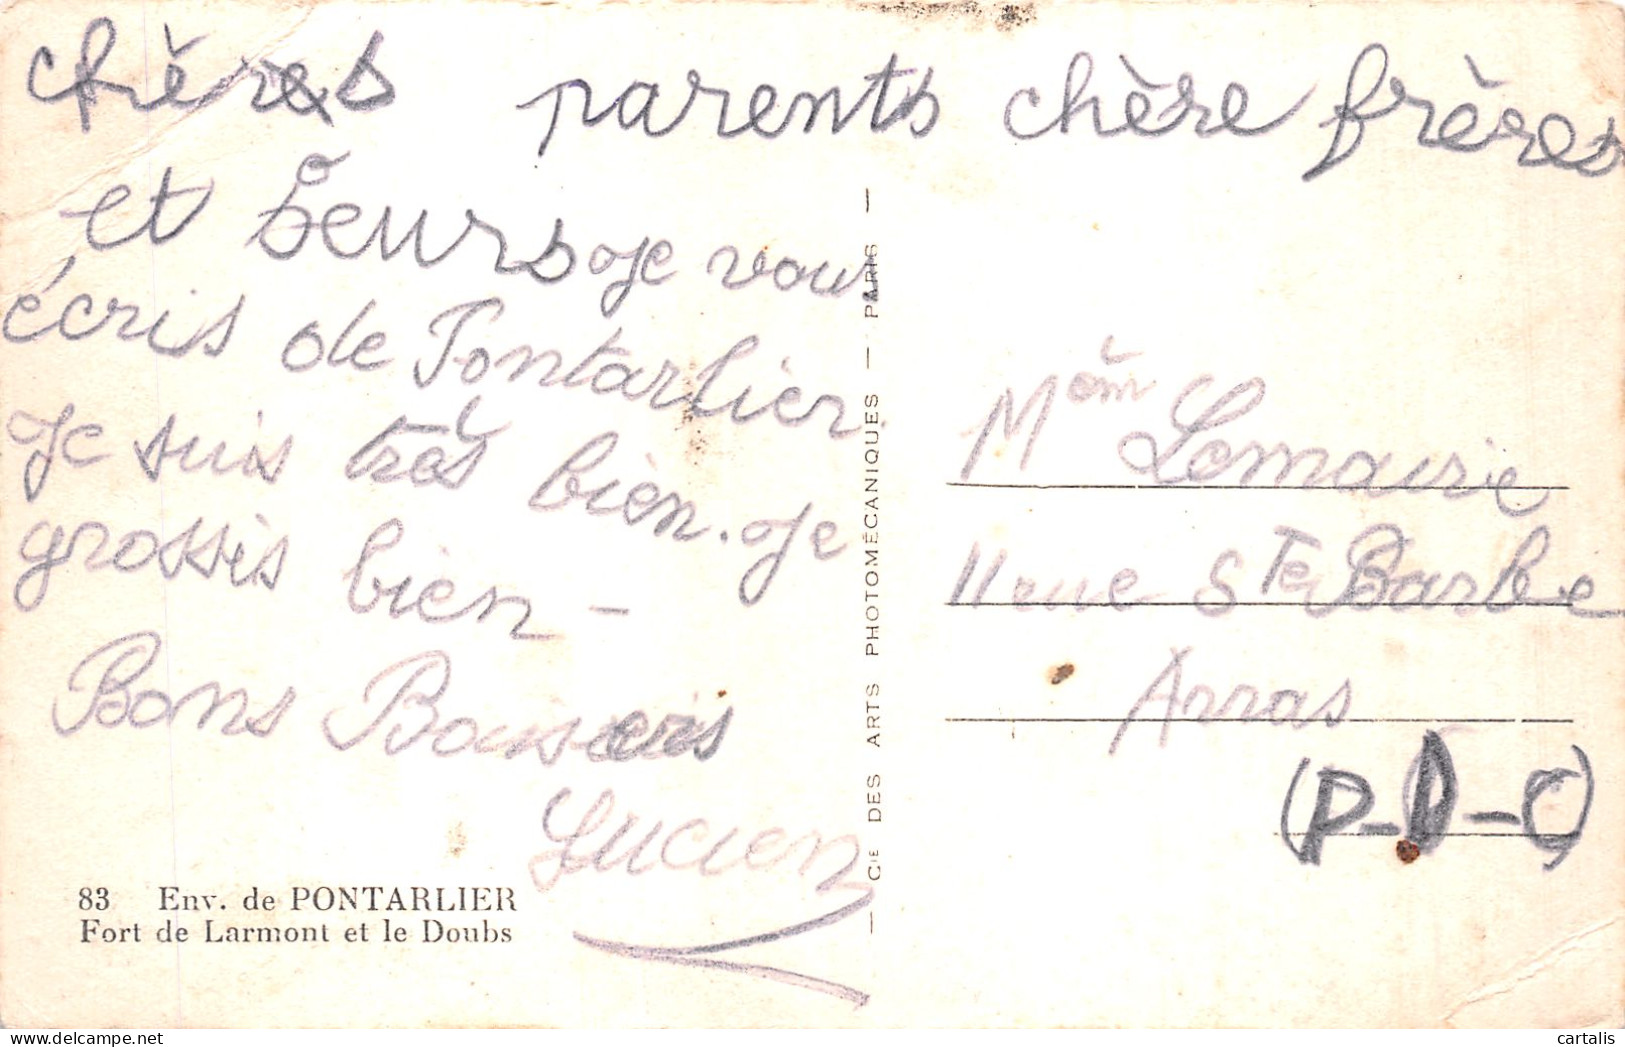 chères parents chère frères
et seurs Je vous
écris de Pontarlier.
Je suis très bien. Je
grossis bien -
Bons Baisers
Lucien
83 Env. de PONTARLIER
Fort de Larmont et le Doubs
— CIE DES ARTS PHOTOMÉCANIQUES — PARIS —
Mèm Lemairie
11 rue Ste Barbe
Arras
(P-D-C)
cartalis